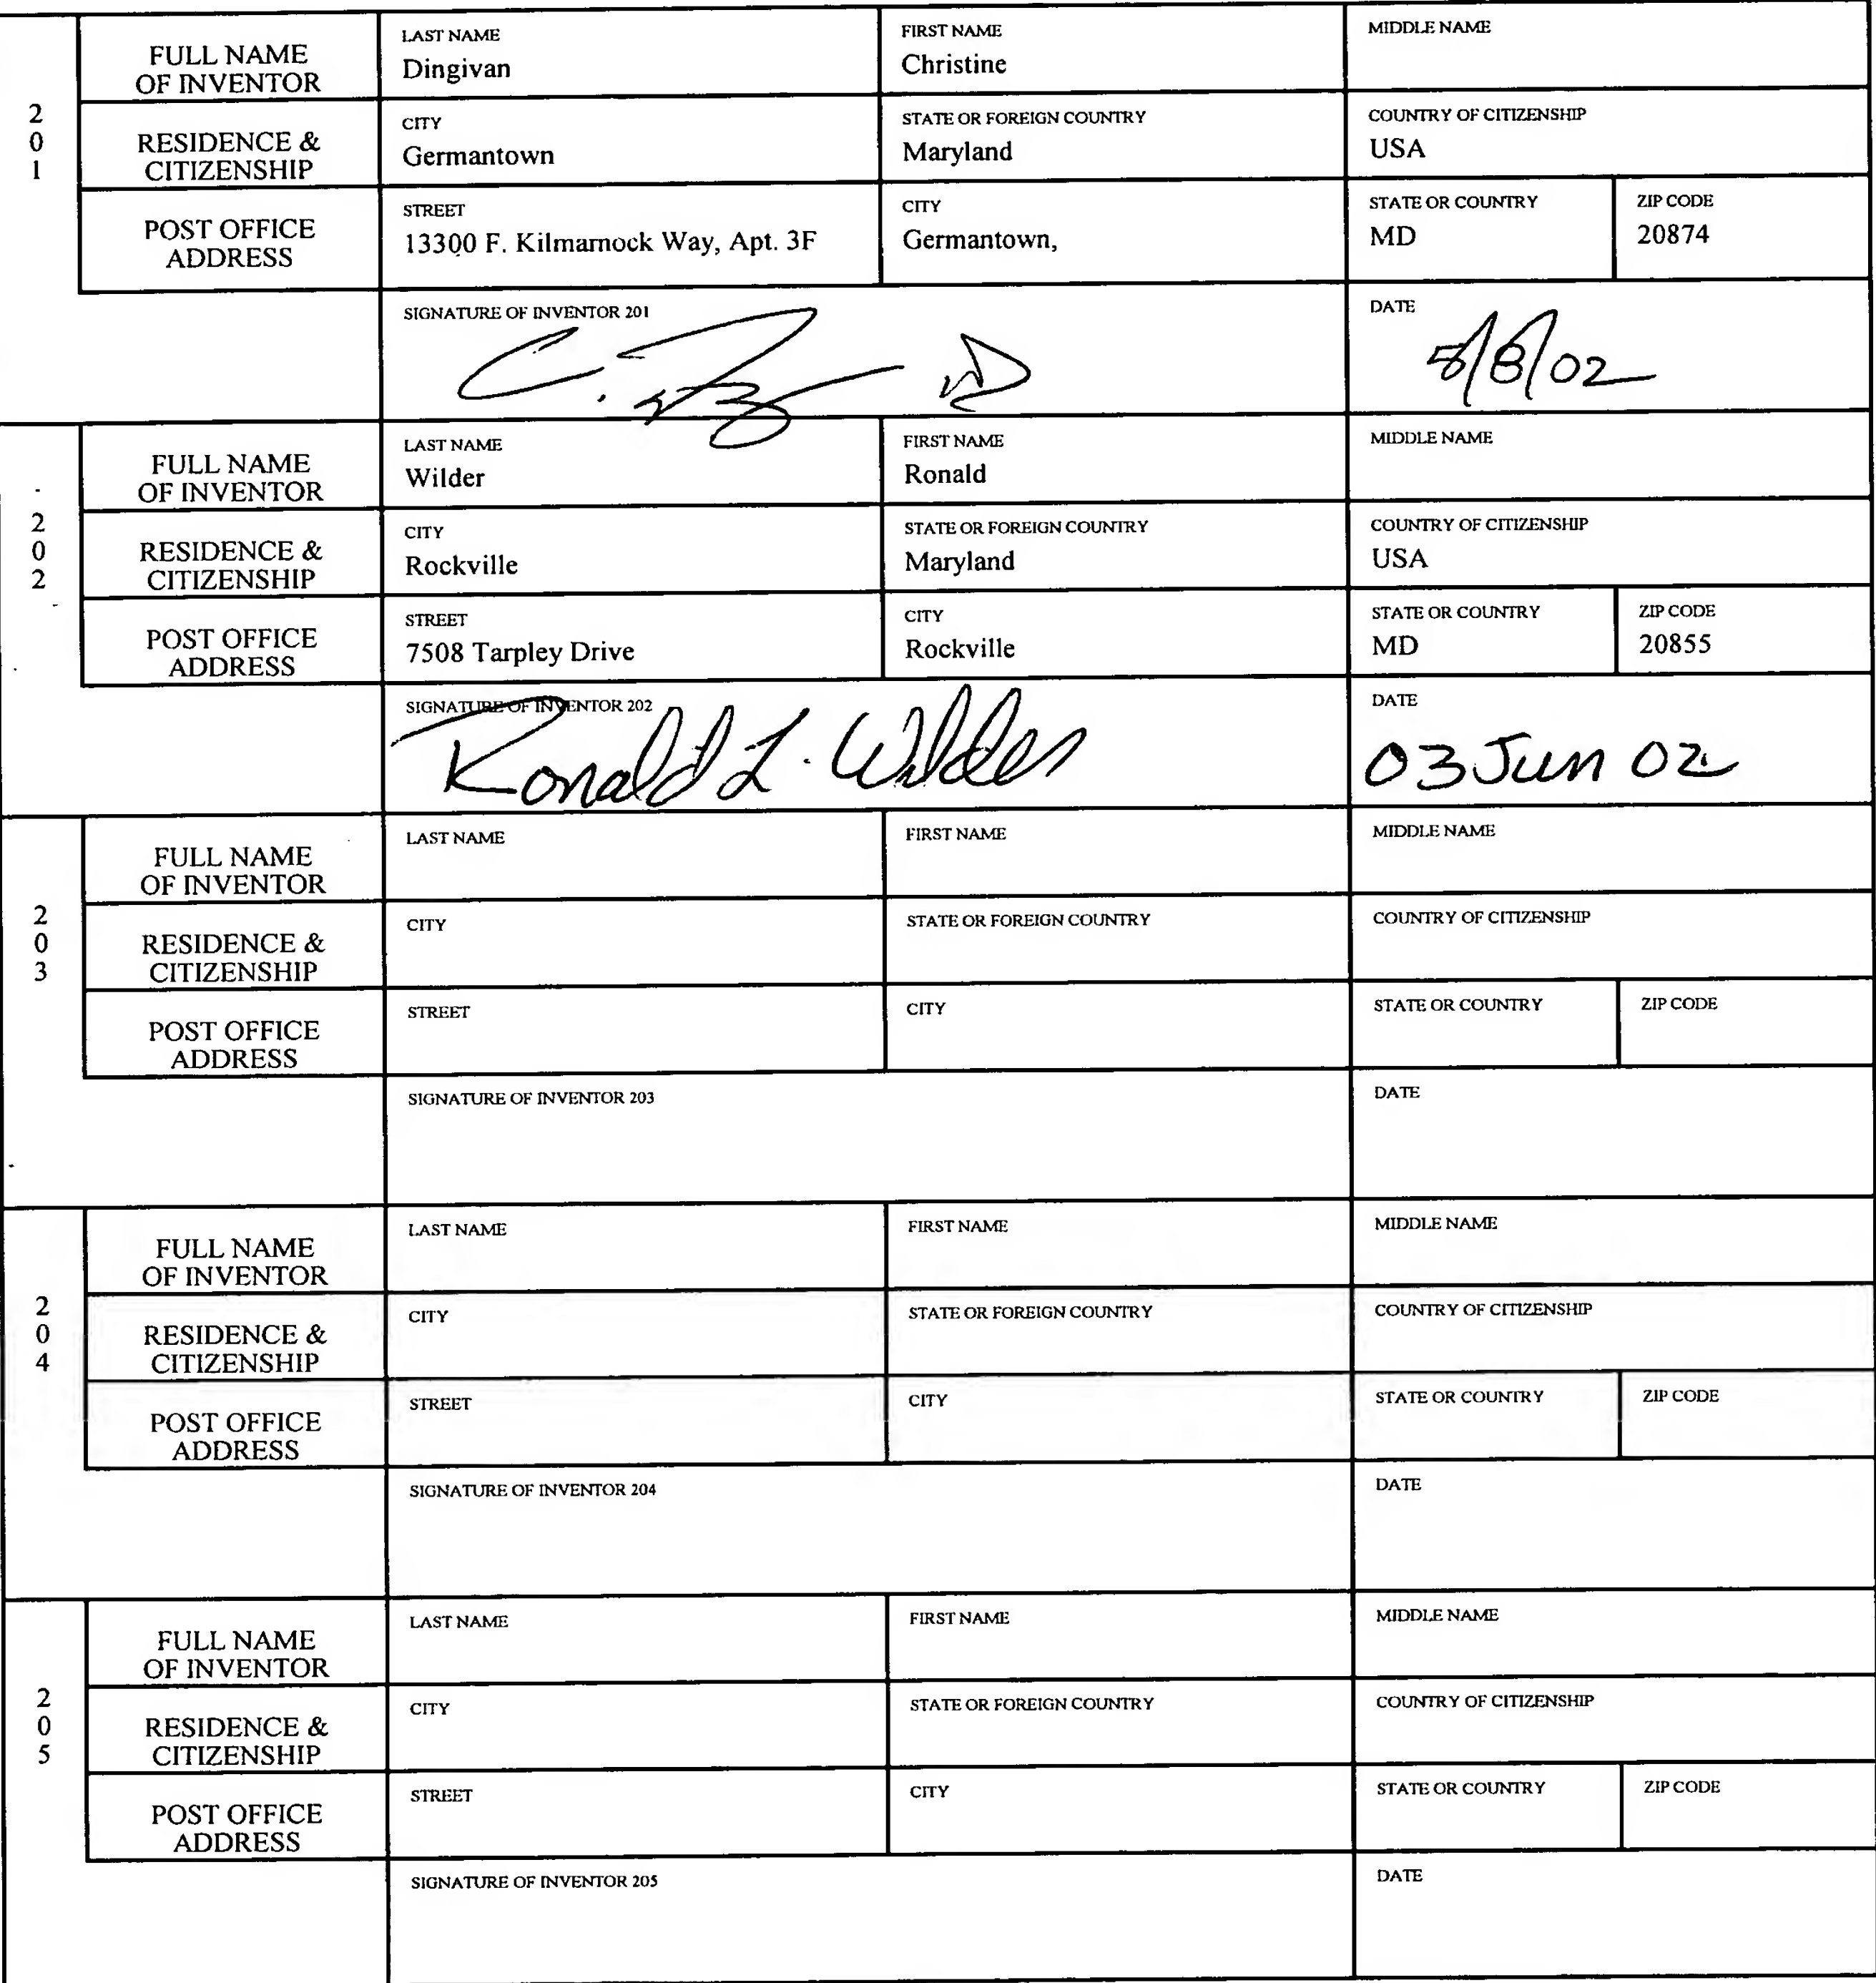 201
FULL NAME OF INVENTOR
LAST NAME
Dingivan
FIRST NAME
Christine
MIDDLE NAME
RESIDENCE & CITIZENSHIP
CITY
Germantown
STATE OR FOREIGN COUNTRY
Maryland
COUNTRY OF CITIZENSHIP
USA
POST OFFICE ADDRESS
STREET
13300 F. Kilmarnock Way, Apt. 3F
CITY
Germantown,
STATE OR COUNTRY
MD
ZIP CODE
20874
SIGNATURE OF INVENTOR 201
DATE
5/8/02
202
FULL NAME OF INVENTOR
LAST NAME
Wilder
FIRST NAME
Ronald
MIDDLE NAME
RESIDENCE & CITIZENSHIP
CITY
Rockville
STATE OR FOREIGN COUNTRY
Maryland
COUNTRY OF CITIZENSHIP
USA
POST OFFICE ADDRESS
STREET
7508 Tarpley Drive
CITY
Rockville
STATE OR COUNTRY
MD
ZIP CODE
20855
SIGNATURE OF INVENTOR 202
Ronald L. Wilder
DATE
03 Jun 02
203
FULL NAME OF INVENTOR
LAST NAME
FIRST NAME
MIDDLE NAME
RESIDENCE & CITIZENSHIP
CITY
STATE OR FOREIGN COUNTRY
COUNTRY OF CITIZENSHIP
POST OFFICE ADDRESS
STREET
CITY
STATE OR COUNTRY
ZIP CODE
SIGNATURE OF INVENTOR 203
DATE
204
FULL NAME OF INVENTOR
LAST NAME
FIRST NAME
MIDDLE NAME
RESIDENCE & CITIZENSHIP
CITY
STATE OR FOREIGN COUNTRY
COUNTRY OF CITIZENSHIP
POST OFFICE ADDRESS
STREET
CITY
STATE OR COUNTRY
ZIP CODE
SIGNATURE OF INVENTOR 204
DATE
205
FULL NAME OF INVENTOR
LAST NAME
FIRST NAME
MIDDLE NAME
RESIDENCE & CITIZENSHIP
CITY
STATE OR FOREIGN COUNTRY
COUNTRY OF CITIZENSHIP
POST OFFICE ADDRESS
STREET
CITY
STATE OR COUNTRY
ZIP CODE
SIGNATURE OF INVENTOR 205
DATE